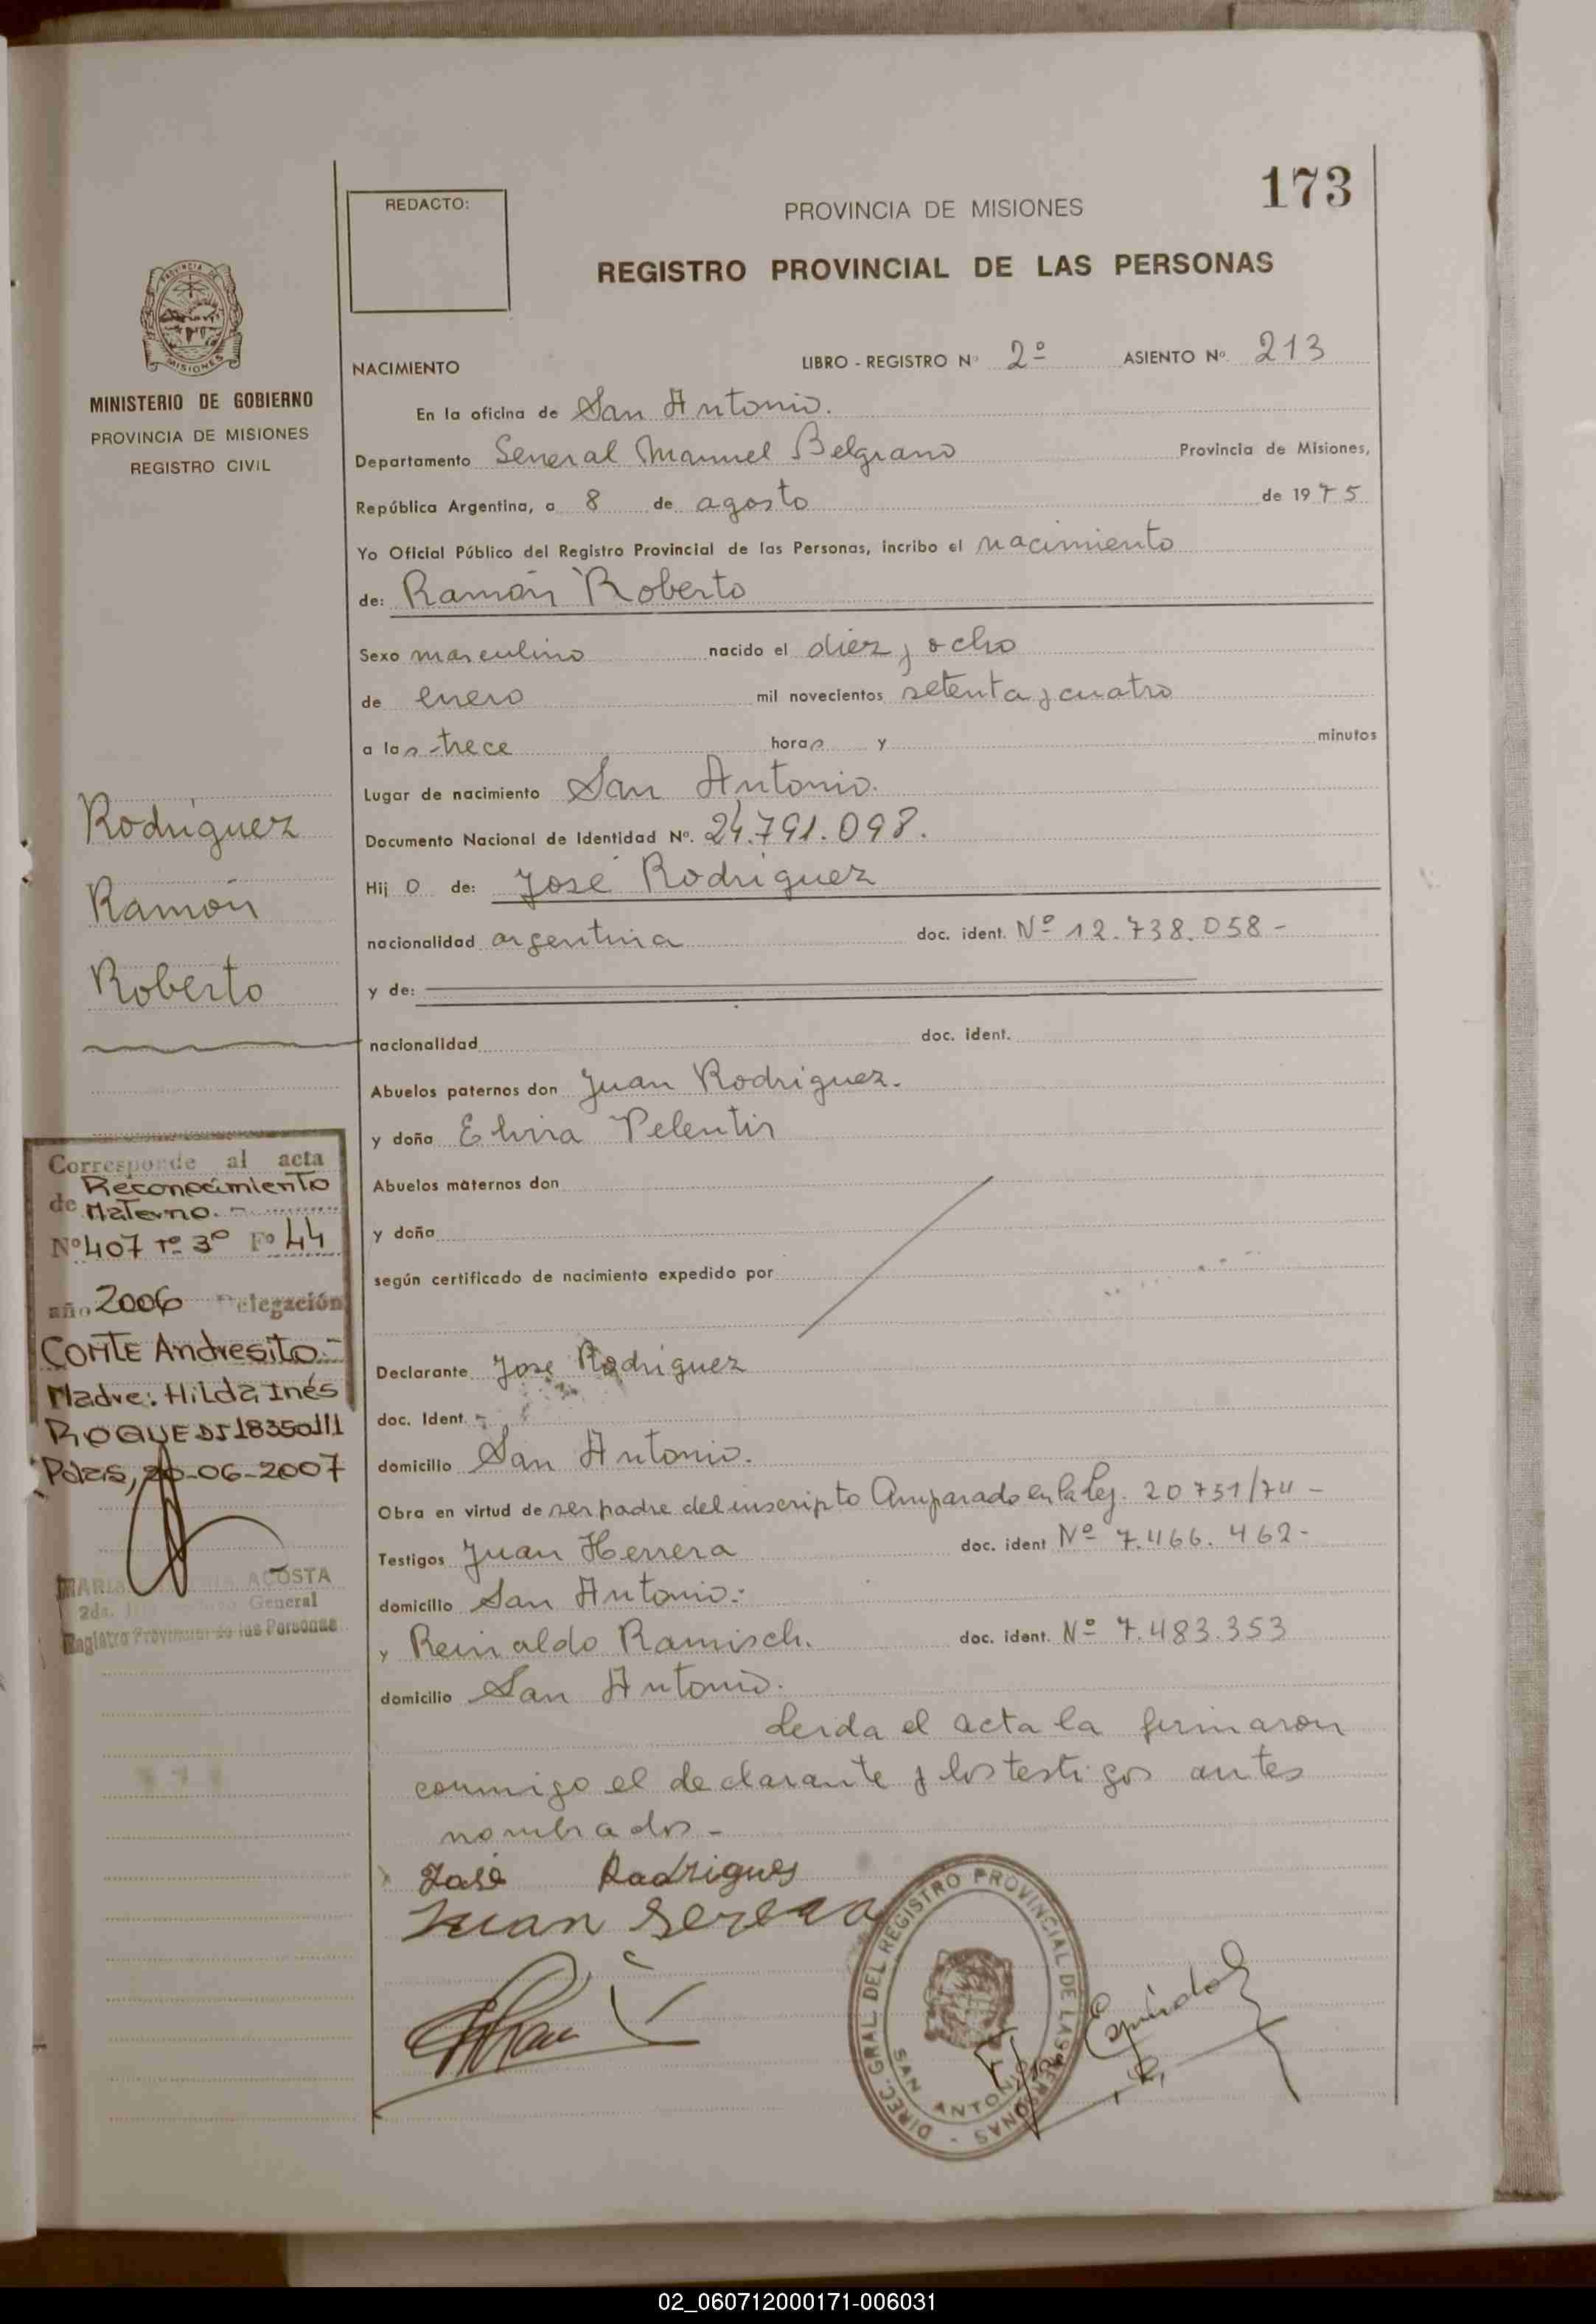 173
REDACTO:
PROVINCIA DE MISIONES
REGISTRO PROVINCIAL DE LAS PERSONAS
PROVINCIA DE
MISIONES
MINISTERIO DE GOBIERNO
PROVINCIA DE MISIONES
REGISTRO CIVIL
NACIMIENTO LIBRO - REGISTRO Nº 2º ASIENTO Nº 213
En la oficina de San Antonio.
Departamento General Manuel Belgrano Provincia de Misiones,
República Argentina, a 8 de agosto de 1975
Yo Oficial Público del Registro Provincial de las Personas, incribo el nacimiento
de: Ramón Roberto
Sexo masculino nacido el diez y ocho
de enero mil novecientos setenta y cuatro
a las trece horas y minutos
Lugar de nacimiento San Antonio.
Documento Nacional de Identidad Nº. 24.791.098.
Hijo de: José Rodríguez
nacionalidad argentina doc. ident. Nº 12.738.058-
y de:
nacionalidad doc. ident.
Abuelos paternos don Juan Rodriguez.
y doña Elvira Pelentir
Abuelos maternos don
y doña
según certificado de nacimiento expedido por
Declarante José Rodriguez
doc. Ident. -
domicilio San Antonio.
Obra en virtud de ser padre del inscripto Amparado en la Ley. 20751/74-
Testigos Juan Herrera doc. ident Nº 7.466.462-
domicilio San Antonio.
y Reinaldo Ramisch. doc. ident. Nº 7.483.353
domicilio San Antonio.
Leida el acta la firmaron
conmigo el declarante y los testigos antes
nombrados-
José Rodrigues
Juan Herera
DIREC. GRAL. DEL REGISTRO PROVINCIAL DE LAS PERSONAS -
SAN ANTONIO
Rodríguez
Ramón
Roberto
Corresponde al acta
de Reconocimiento
Materno.-
Nº 407 Tº 3º Fº 44
año 2006 Delegación
COMTE Andresito.-
Madre: Hilda Inés
ROQUE DI 18350111
Pdas, 20-06-2007
MARIA ACOSTA
2da. General
Registro Provincial de las Personas
02_060712000171-006031